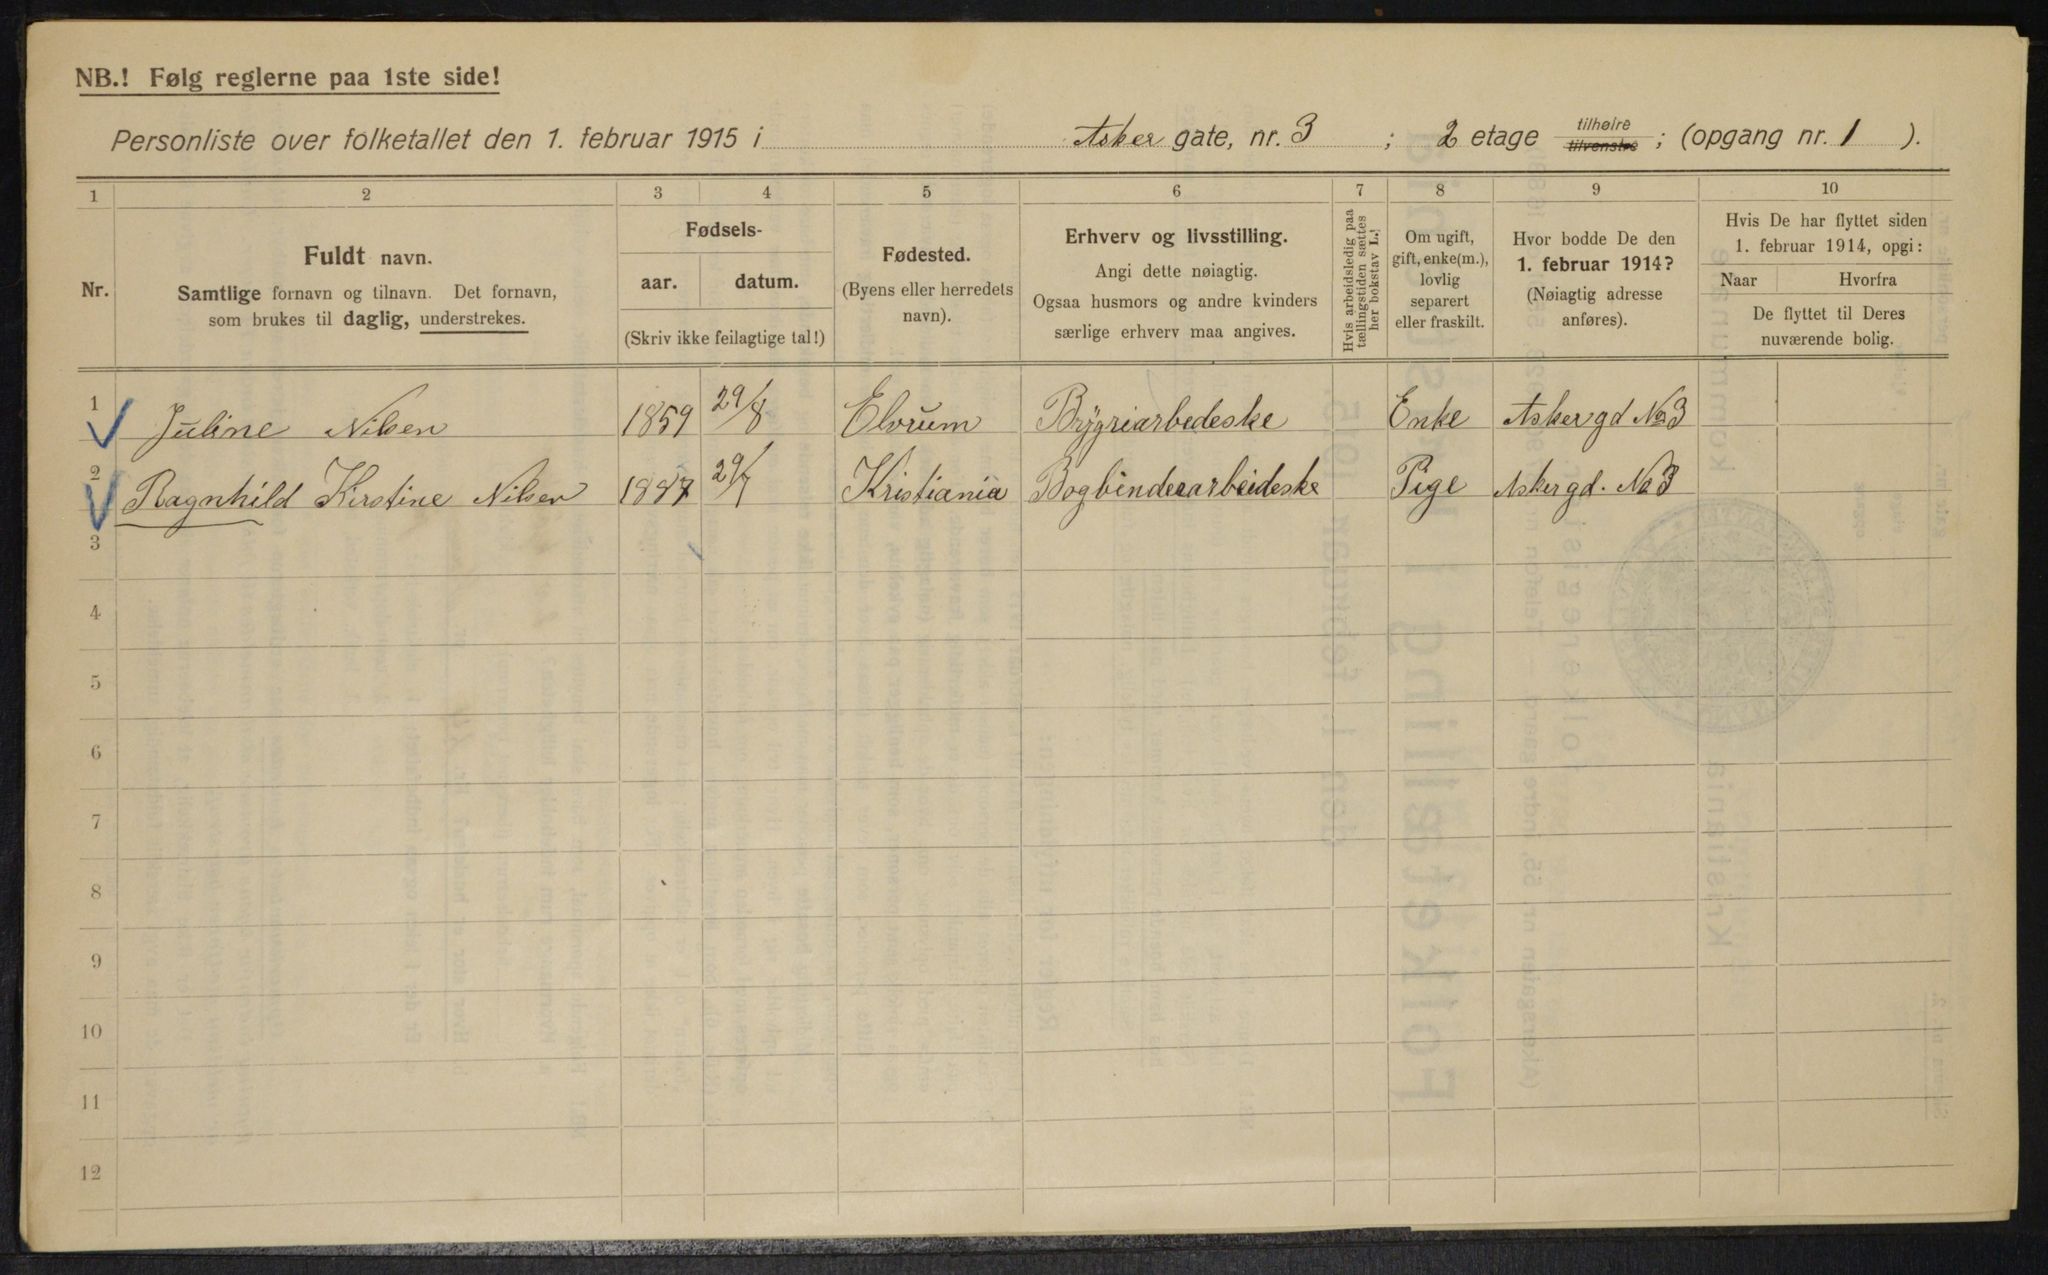 NB.! Følg reglerne paa 1ste side!
Personliste over folketallet den 1. februar 1915 i Asker gate, nr. 3 ; 2 etage tilhøire tilvenstre ; (opgang nr. 1 ).
1 2 3 4 5 6 7 8 9 10
Nr.
Fuldt navn.
Samtlige fornavn og tilnavn. Det fornavn,
som brukes til daglig, understrekes.
Fødsels-
aar. datum.
(Skriv ikke feilagtige tal!)
Fødested.
(Byens eller herredets
navn).
Erhverv og livsstilling.
Angi dette nøiagtig.
Ogsaa husmors og andre kvinders
særlige erhverv maa angives.
Hvis arbeidsledig paa
tællingstiden sættes
her bokstav L.
Om ugift,
gift, enke(m.),
lovlig
separert
eller fraskilt.
Hvor bodde De den
1. februar 1914?
(Nøiagtig adresse
anføres).
Hvis De har flyttet siden
1. februar 1914, opgi:
Naar Hvorfra
De flyttet til Deres
nuværende bolig.
1 Juline Nilsen 1859 29/8 Elvrum Brygriarbedeske Enke Askergd No 3
2 Ragnhild Kirstine Nilsen 1887 29/7 Kristiania Bogbinderarbeideske Pige Askergd. No 3
3
4
5
6
7
8
9
10
11
12